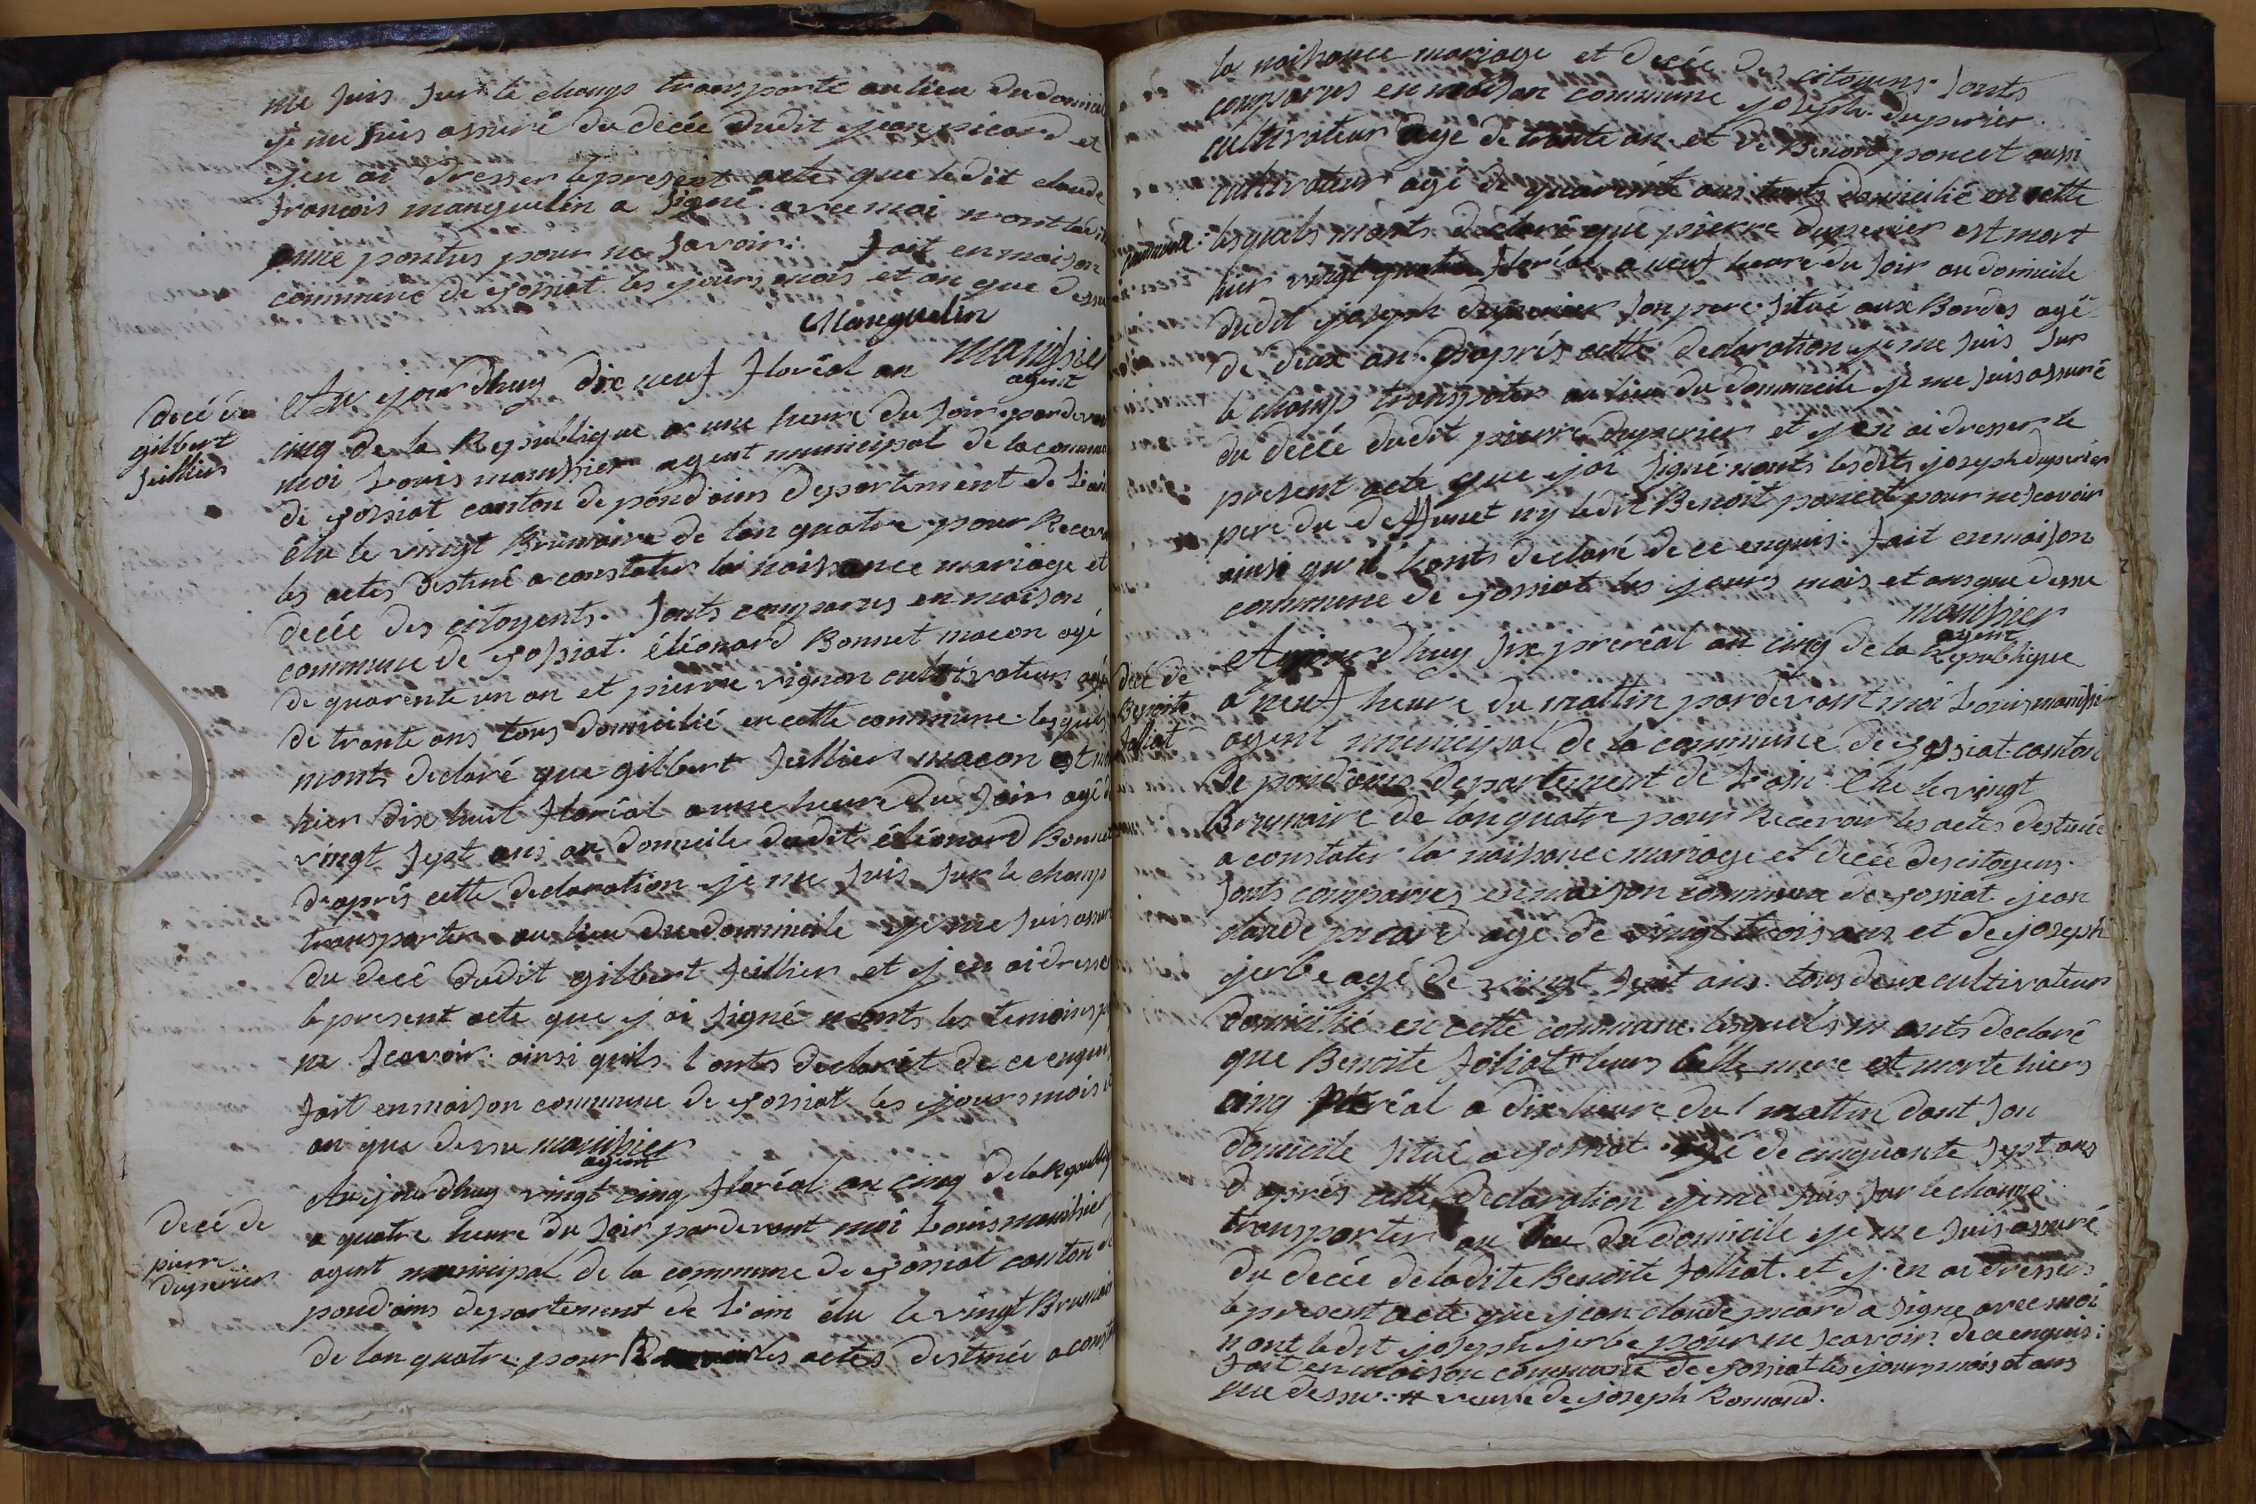 me suis sur le champs transporté au lieu du domicil
je me suis assuré du decée dudit jean picard et
j'en ai dresser le present acte que le dit claude
francois manguelin a signé avec moi non ledit
pontus pour ne savoir. fait en maison
commune de jossiat les jours mois et an que dessu
Manguelin
manissier
agent
decé de
gilbert
juillier
Au jourdhuy dix neuf floréal an
cinq de la Republique a une heure du soir pardevan
moi Louis manissier agent municipal de la commun
de jossiat canton de pondains departement de Lain
élu le vingt Brumaire de lan quatre pour Recev
les actes destiné a constater la naissance mariage et
decée des citoyents. sonts comparus en maison
commune de jossiat. éléonard Bonnet macon agé
de quarente un an et pierre vignon cultivateur agé
de trante ans tous domicilié en cette commune. lesquels
monts declaré que gilbert juillier macon est mo
hier dix huit floréal a une heure du soir agé d
vingt sept ans au domicile dudit éléonard Bonnet
daprés cette declaration je me suis sur le champs
transporter au lieu du dommicile je me suis assuré
du decé dudit gilbert juillier et j'en ai dresser
le present acte que j'ai signé nonts les temoins p
ne scavoir. ainsi quils lonts declarét de ce enquis
fait en maison commune de jossiat les jours mois e
an que dessu manissier
agent
decé de
pierre
duperier
Aujourdhuy vingt cinq floréal an cinq de la Republiq
a quatre heure du soir pardevant moi Louis manissier
agent municipal de la commune de jossiat canton de
pondains departement de Lain élu le vingt Brumair
de lan quatre pour les actes destinée a const
la naissance mariage et decée des citoyens. sonts
comparus en maison commune joseph duperier
cultivateur agé de trante an et de Benoit poncet aussi
cultivateur agé de quarente ans touts domicilié en cette
commune. lesquels monts declaré que pierre duperier est mort
hier vingt quatre floréal a neuf heure du soir au domicile
dudit joseph duperier son pere situé aux Bordes agé
de deux an. daprés cette declaration je me suis sur
le champs transporter au lieu du dommicile je me suis assuré
du decée dudit pierre duperier et j'en ai dresser le
present acte que j'ai signé nonts lesdits joseph duperier
pere du deffunct ny ledit Benoit poncet pour ne scavoir
ainsi qu'il lonts declaré de ce enquis. fait en maison
commune de jossiat les jours mois et ans que dessu
manissier
agent
decé de
Benoite
jolliat
Aujourdhuy six preréal an cinq de la Republique
a neuf heure du mattin pardevant moi Louis manissier
agent municipal de la commune de jossiat canton
de pondains departement de Lain. élu le vingt
Brumaire de lan quatre pour Recevoir les actes destinée
a constater la naissance mariage et decée des citoyens.
sonts comparus en maison commune de jossiat jean
claude picard agé de vingt trois ans et de joseph
jerbe agé de vingt sept ans. tous deux cultivateur
domicilié en cette commune. lesquels m'onts declaré
que Benoite joliat # leurs belle mere est morte hiers
cinq preréal a dix heure du mattin dant son
domicile situé a jossiat. agé de cinquante sept ans
d'aprés cette declaration je me suis sur le champs
transporter au lieu du domicile je me suis assuré
du decée de ladite Benoite jolliat. et j'en ai dresser
le present acte que jean claude picard a signe avec moi
n ont ledit joseph jerbe pour ne scavoir de ce enquis.
fait en maison commune de jossiat les jours mois et ans
que dessu. # veuve de joseph Romand.